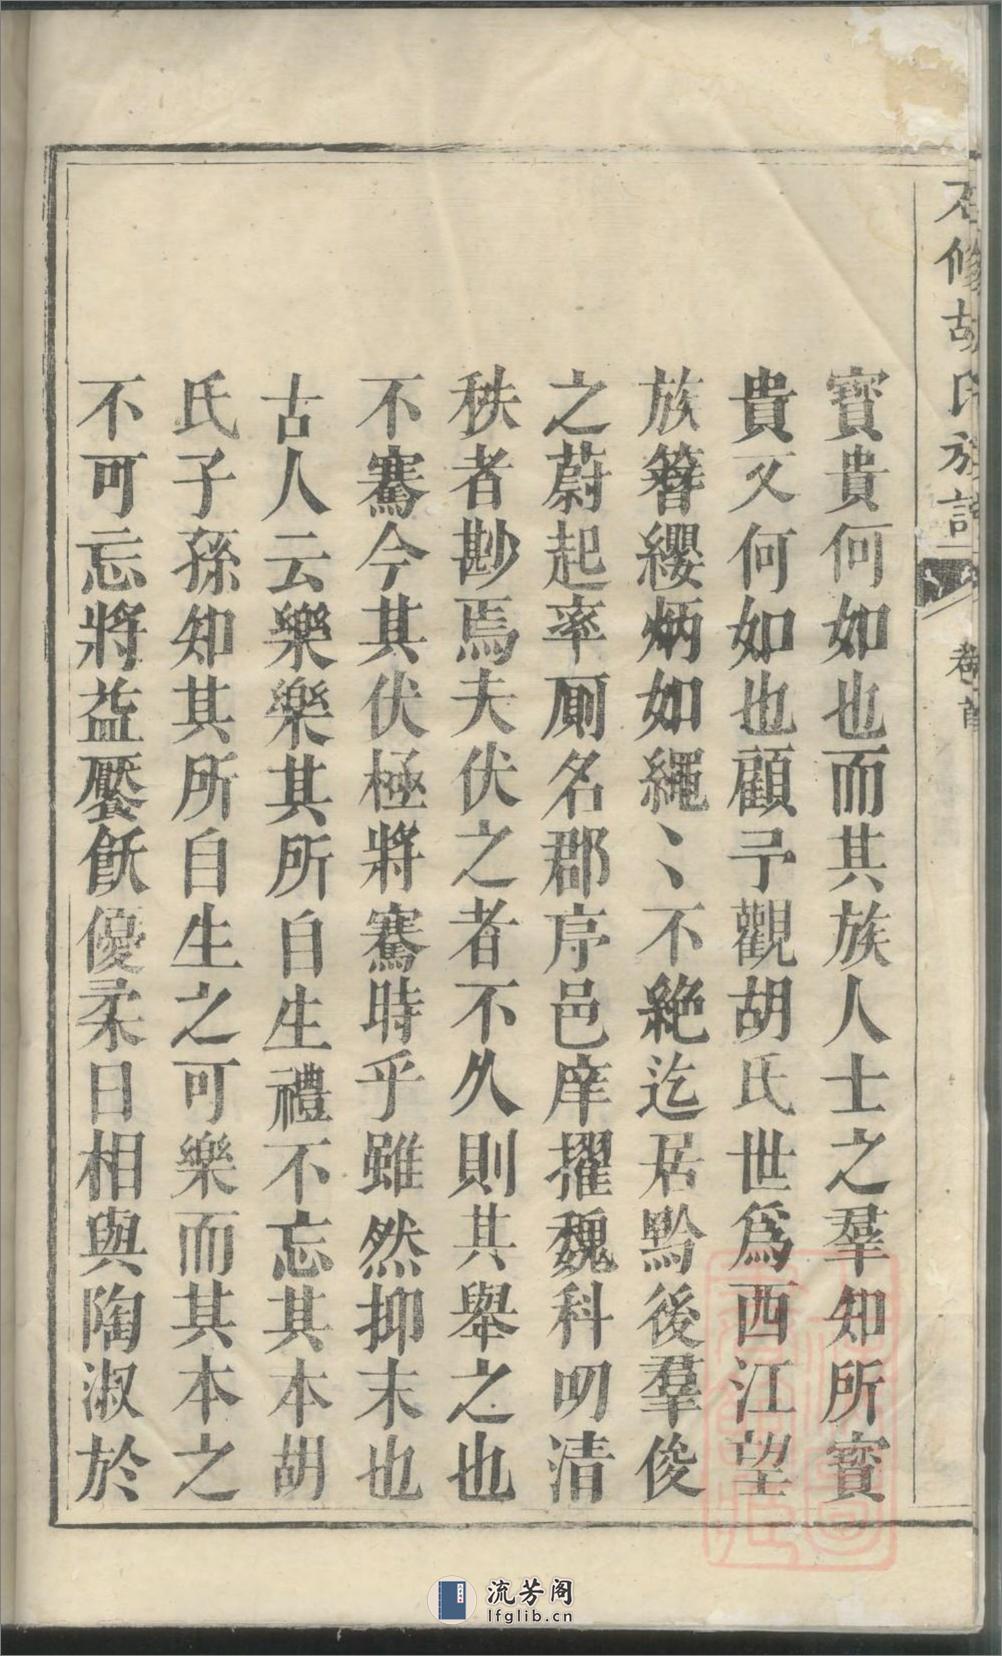 修胡氏族譜
卷首
寳貴何如也而其族人士之羣知所寳
貴又何如也顧予觀胡氏世爲西江望
族簮纓炳如繩〻不絶迄居黔後羣俊
之蔚起率厠名郡庠邑庠擢魏科明清
秩者尠焉夫伏之者不久則其舉之也
不騫今其伏極將騫時乎雖然抑末也
古人云樂樂其所自生禮不忘其本胡
氏子孫知其所自生之可樂而其本之
不可忘將益饜飫優柔日相與陶淑於
流芳阁
lfglib.cn